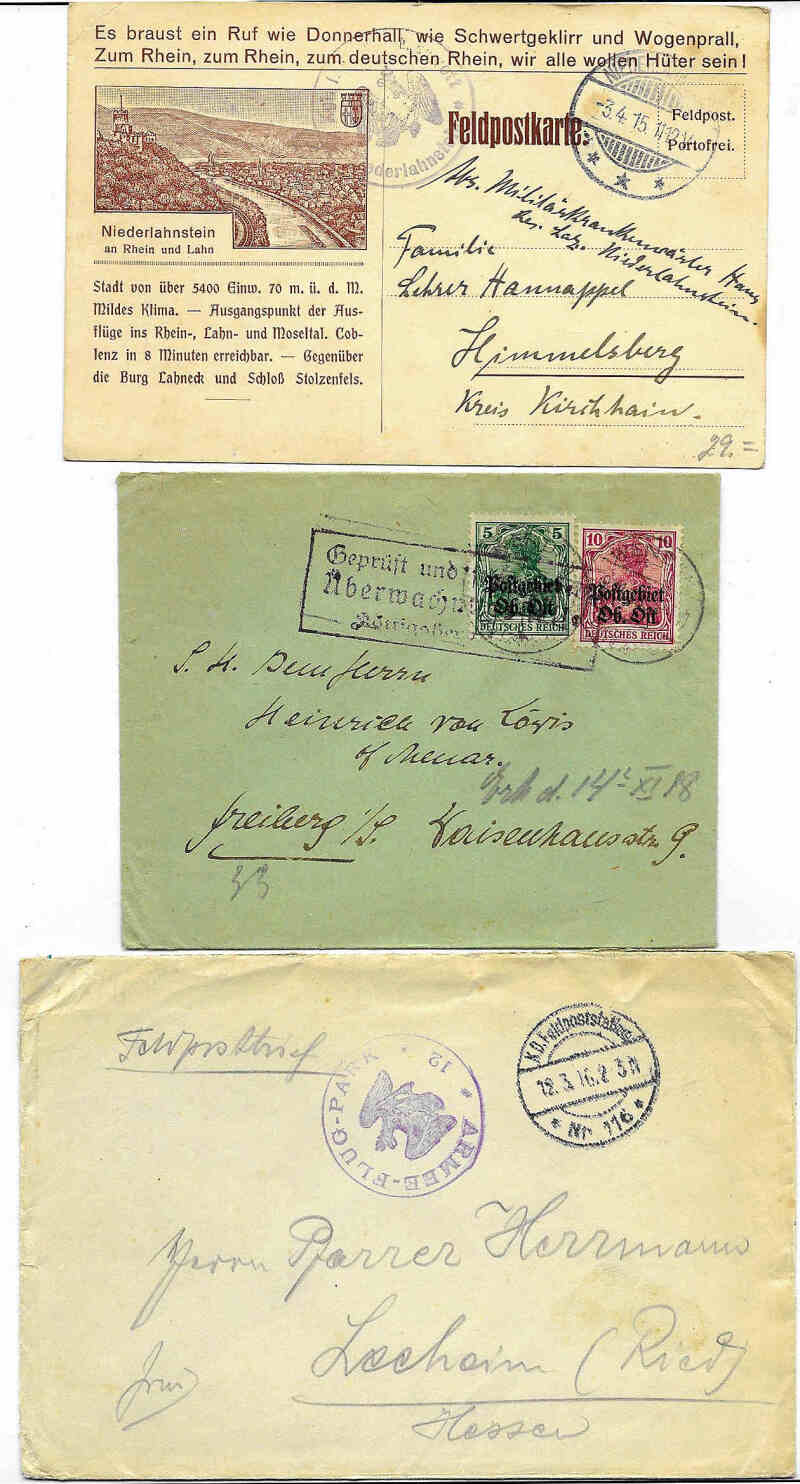 Es braust ein Ruf wie Donnerhall, wie Schwertgeklirr und Wogenprall,
Zum Rhein, zum Rhein, zum deutschen Rhein, wir alle wollen Hüter sein!
Niederlahnstein
an Rhein und Lahn
Stadt von über 5400 Einw. 70 m. ü. d. M.
Mildes Klima. — Ausgangspunkt der Aus-
flüge ins Rhein-, Lahn- und Moseltal. Cob-
lenz in 8 Minuten erreichbar. — Gegenüber
die Burg Lahneck und Schloß Stolzenfels.
Feldpostkarte.
Feldpost.
Portofrei.
3.4.15.
Abs. Militärkrankenwärter Hann
Res. Laz. Niederlahnstein.
Familie
Lehrer Hannappel
Himmelsberg
Kreis Kirchhain.
29.=
Geprüft und
Überwach
5 5
Postgebiet
Ob. Ost
DEUTSCHES REICH
10 10
Postgebiet
Ob. Ost
DEUTSCHES REICH
S. H. Dem Herrn
Heinrich von Löwis
of Menar.
Erh d. 14t XI 18
Freiberg i/S. Waisenhausstr. 9.
33
Feldpostbrief
ARMEE-FLUG-PARK 12
K.D. Feldpoststation
18.3.16.2 3 N
Nr. 116
Herrn Pfarrer Herrmann
Leeheim (Ried)
Hessen